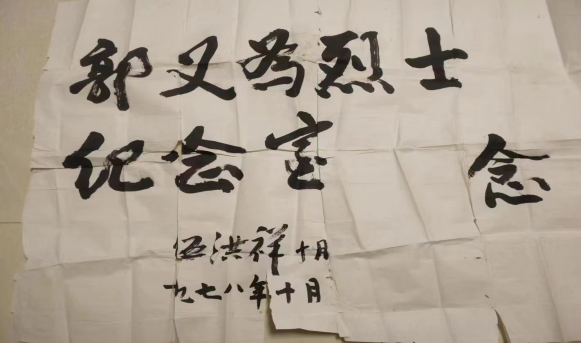 郭又为烈士
纪念室 念
伍洪祥 十月
九七八年十月